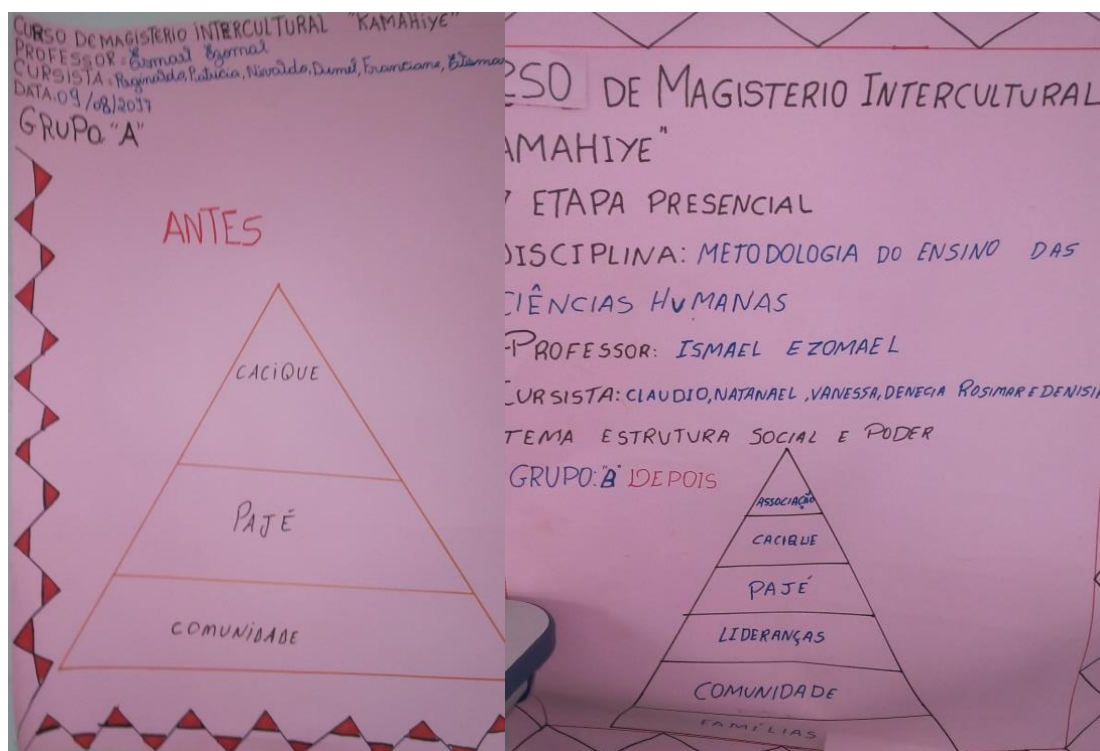 CURSO DE MAGISTERIO INTERCULTURAL "KAMAHIYE"
PROFESSOR:
CURSISTA: Reginaldo, Patricia, Nivaldo,
DATA: 09/08/2017
GRUPO "A"
ANTES
CACIQUE
PAJÉ
COMUNIDADE
RSO DE MAGISTERIO INTERCULTURAL
AMAHIYE"
ETAPA PRESENCIAL
DISCIPLINA: METODOLOGIA DO ENSINO DAS
CIÊNCIAS HUMANAS
PROFESSOR: ISMAEL EZOMAEL
CURSISTA: CLAUDIO, NATANAEL, VANESSA, DENECIA ROSIMAR E DENISI
TEMA ESTRUTURA SOCIAL E PODER
GRUPO: "B" DEPOIS
ASSOCIAÇÃO
CACIQUE
PAJÉ
LIDERANÇAS
COMUNIDADE
FAMÍLIAS